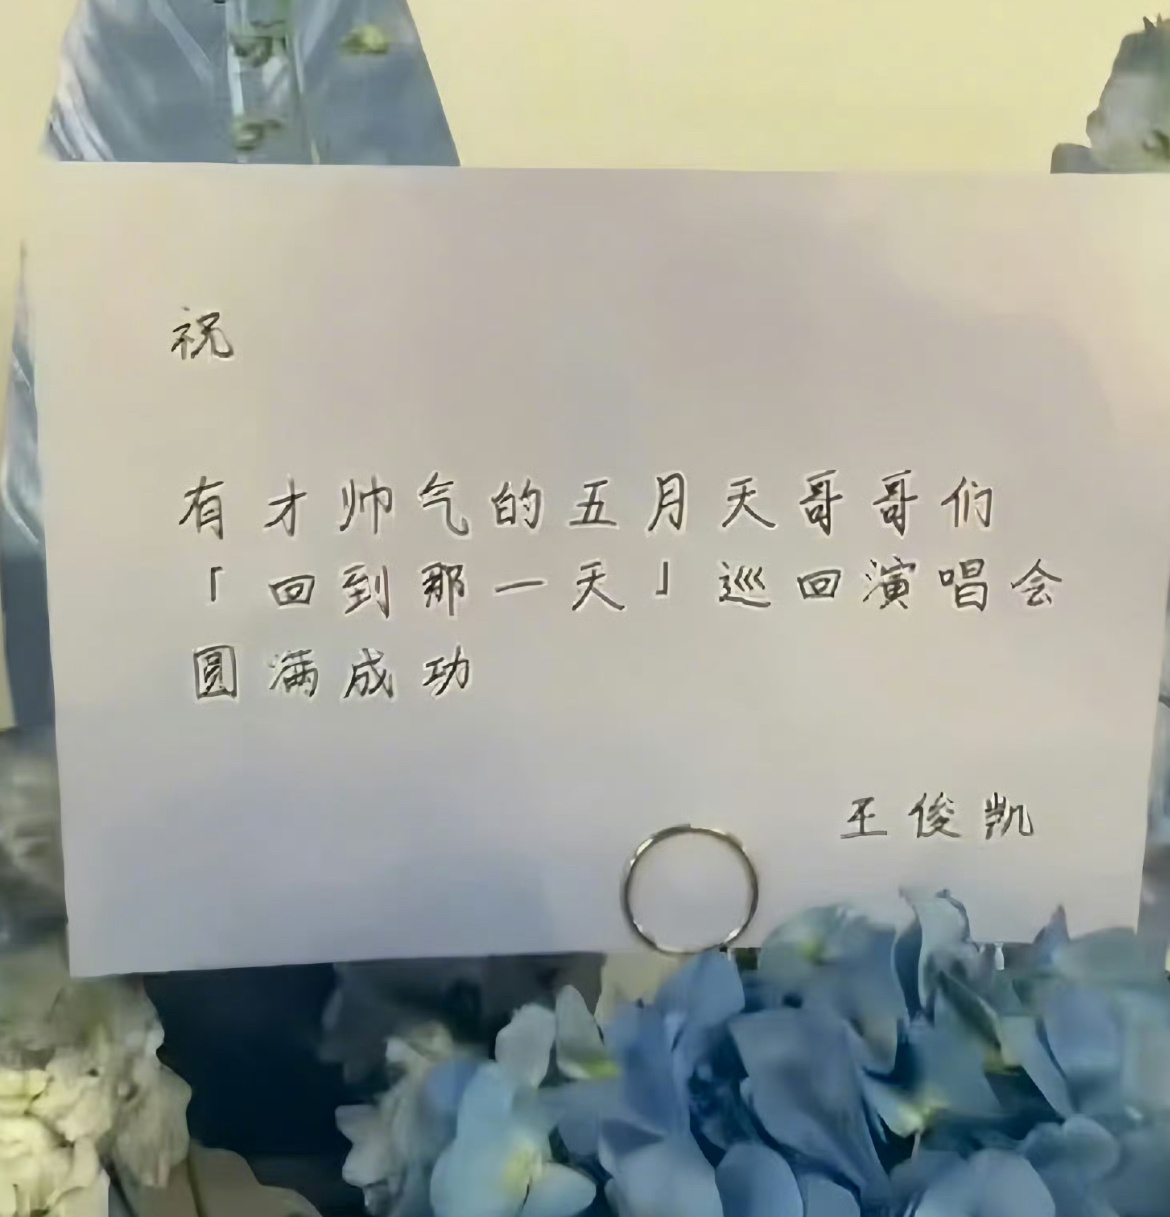 祝
有才帅气的五月天哥哥们
「回到那一天」巡回演唱会
圆满成功
王俊凯